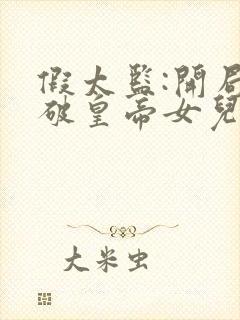 假太监:開局
破皇帝女兒
大米虫